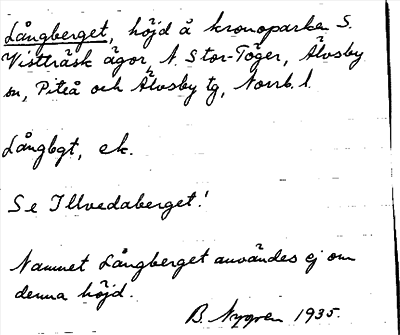 Långberget, höjd å kronoparken S.
Vistträsk ägor, N. Stor-Töger, Älvsby
sn, Piteå och Älvsby tg, Norrb. l.
Långbgt, ek.
Se Illvedaberget!
Namnet Långberget användes ej om
denna höjd.
B. Nygren 1935.